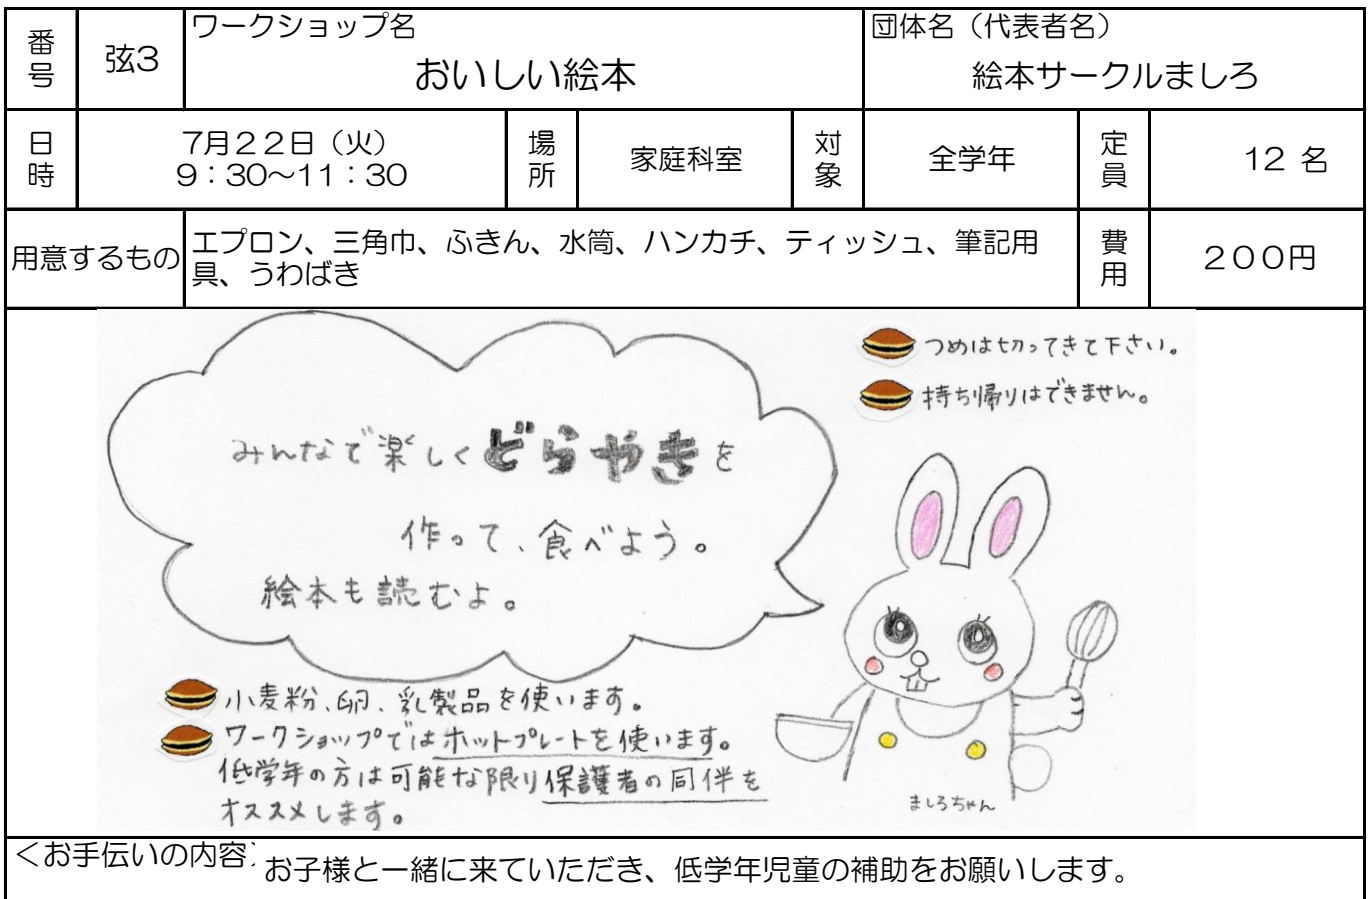 番号
弦3
ワークショップ名
おいしい絵本
団体名（代表者名）
絵本サークルましろ
日時
7月２２日（火）
9：30～11：30
場所
家庭科室
対象
全学年
定員
12 名
用意するもの
エプロン、三角巾、ふきん、水筒、ハンカチ、ティッシュ、筆記用
具、うわばき
費用
２００円
つめは切ってきて下さい。
持ち帰りはできません。
みんなで楽しくどらやきを
作って、食べよう。
絵本も読むよ。
小麦粉、卵、乳製品を使います。
ワークショップではホットプレートを使います。
低学年の方は可能な限り保護者の同伴を
オススメします。
ましろちゃん
＜お手伝いの内容
お子様と一緒に来ていただき、低学年児童の補助をお願いします。